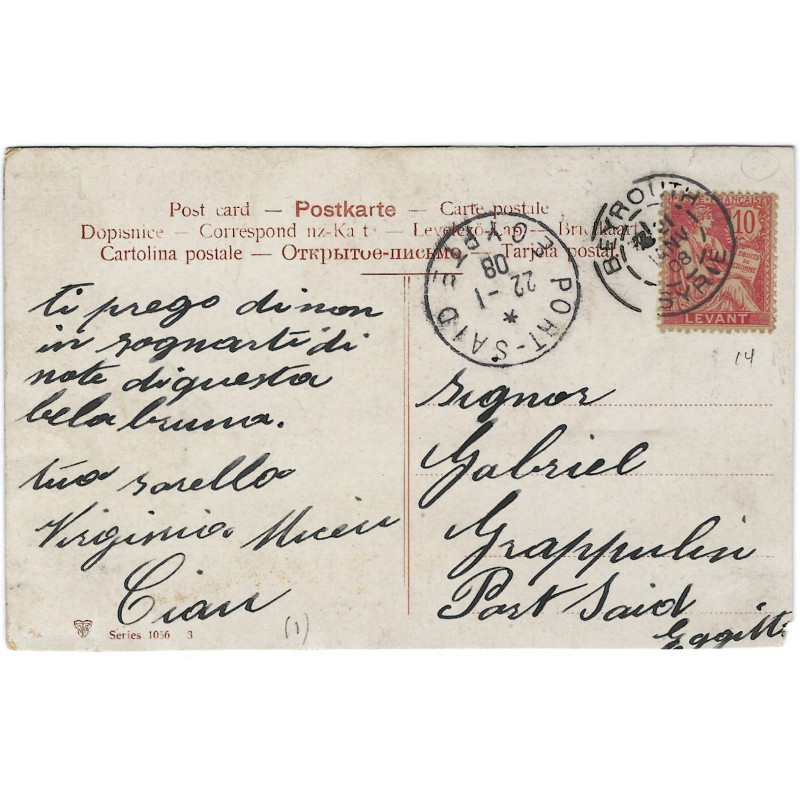 Post card — Postkarte — Carte postale
Dopisnice — Correspond nz-Ka t — Levelező-Lap — Bri fkaart
Cartolina postale — Открытое-письмо — Tarjeta postal
BEYROUTH
SYRIE
08
PORT-SAID
EGYPTE
22 -1
08
*
FRANÇAISE
10
DROITS DE L'HOMME
LEVANT
14
ti prego di non
in sognarti di
note di questa
bela bruna.
tua sorella
Virginia
Ciau
Signor
Gabriel
Grappulin
Port Said
Eggitto
(1)
Series 1056 3